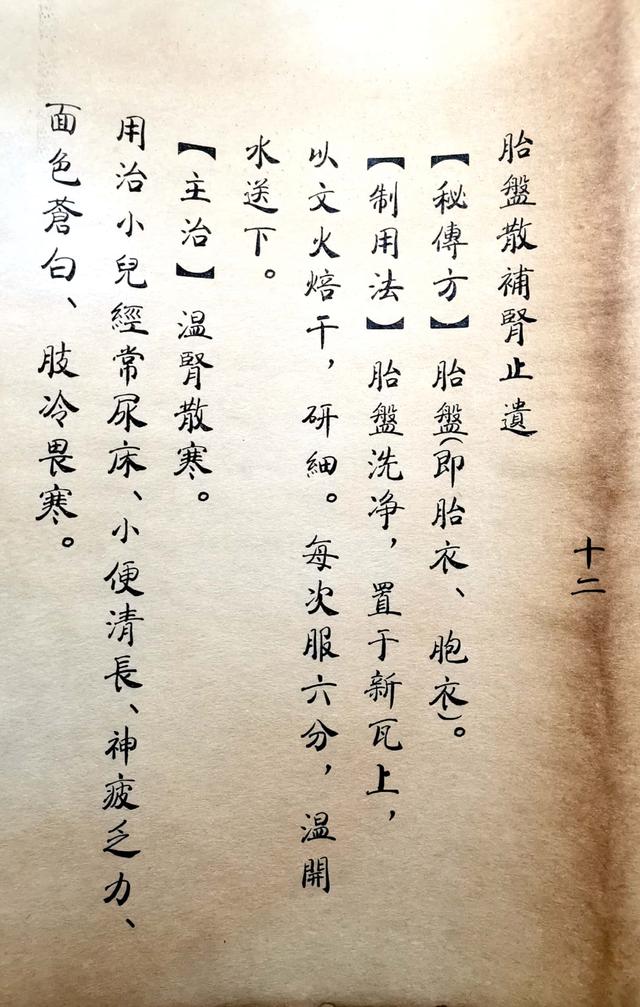 十二
胎盤散補腎止遺
【秘傳方】胎盤(即胎衣、胞衣)。
【制用法】胎盤洗净，置于新瓦上，
以文火焙干，研細。每次服六分，温開
水送下。
【主治】温腎散寒。
用治小兒經常尿床、小便清長、神疲乏力、
面色蒼白、肢冷畏寒。